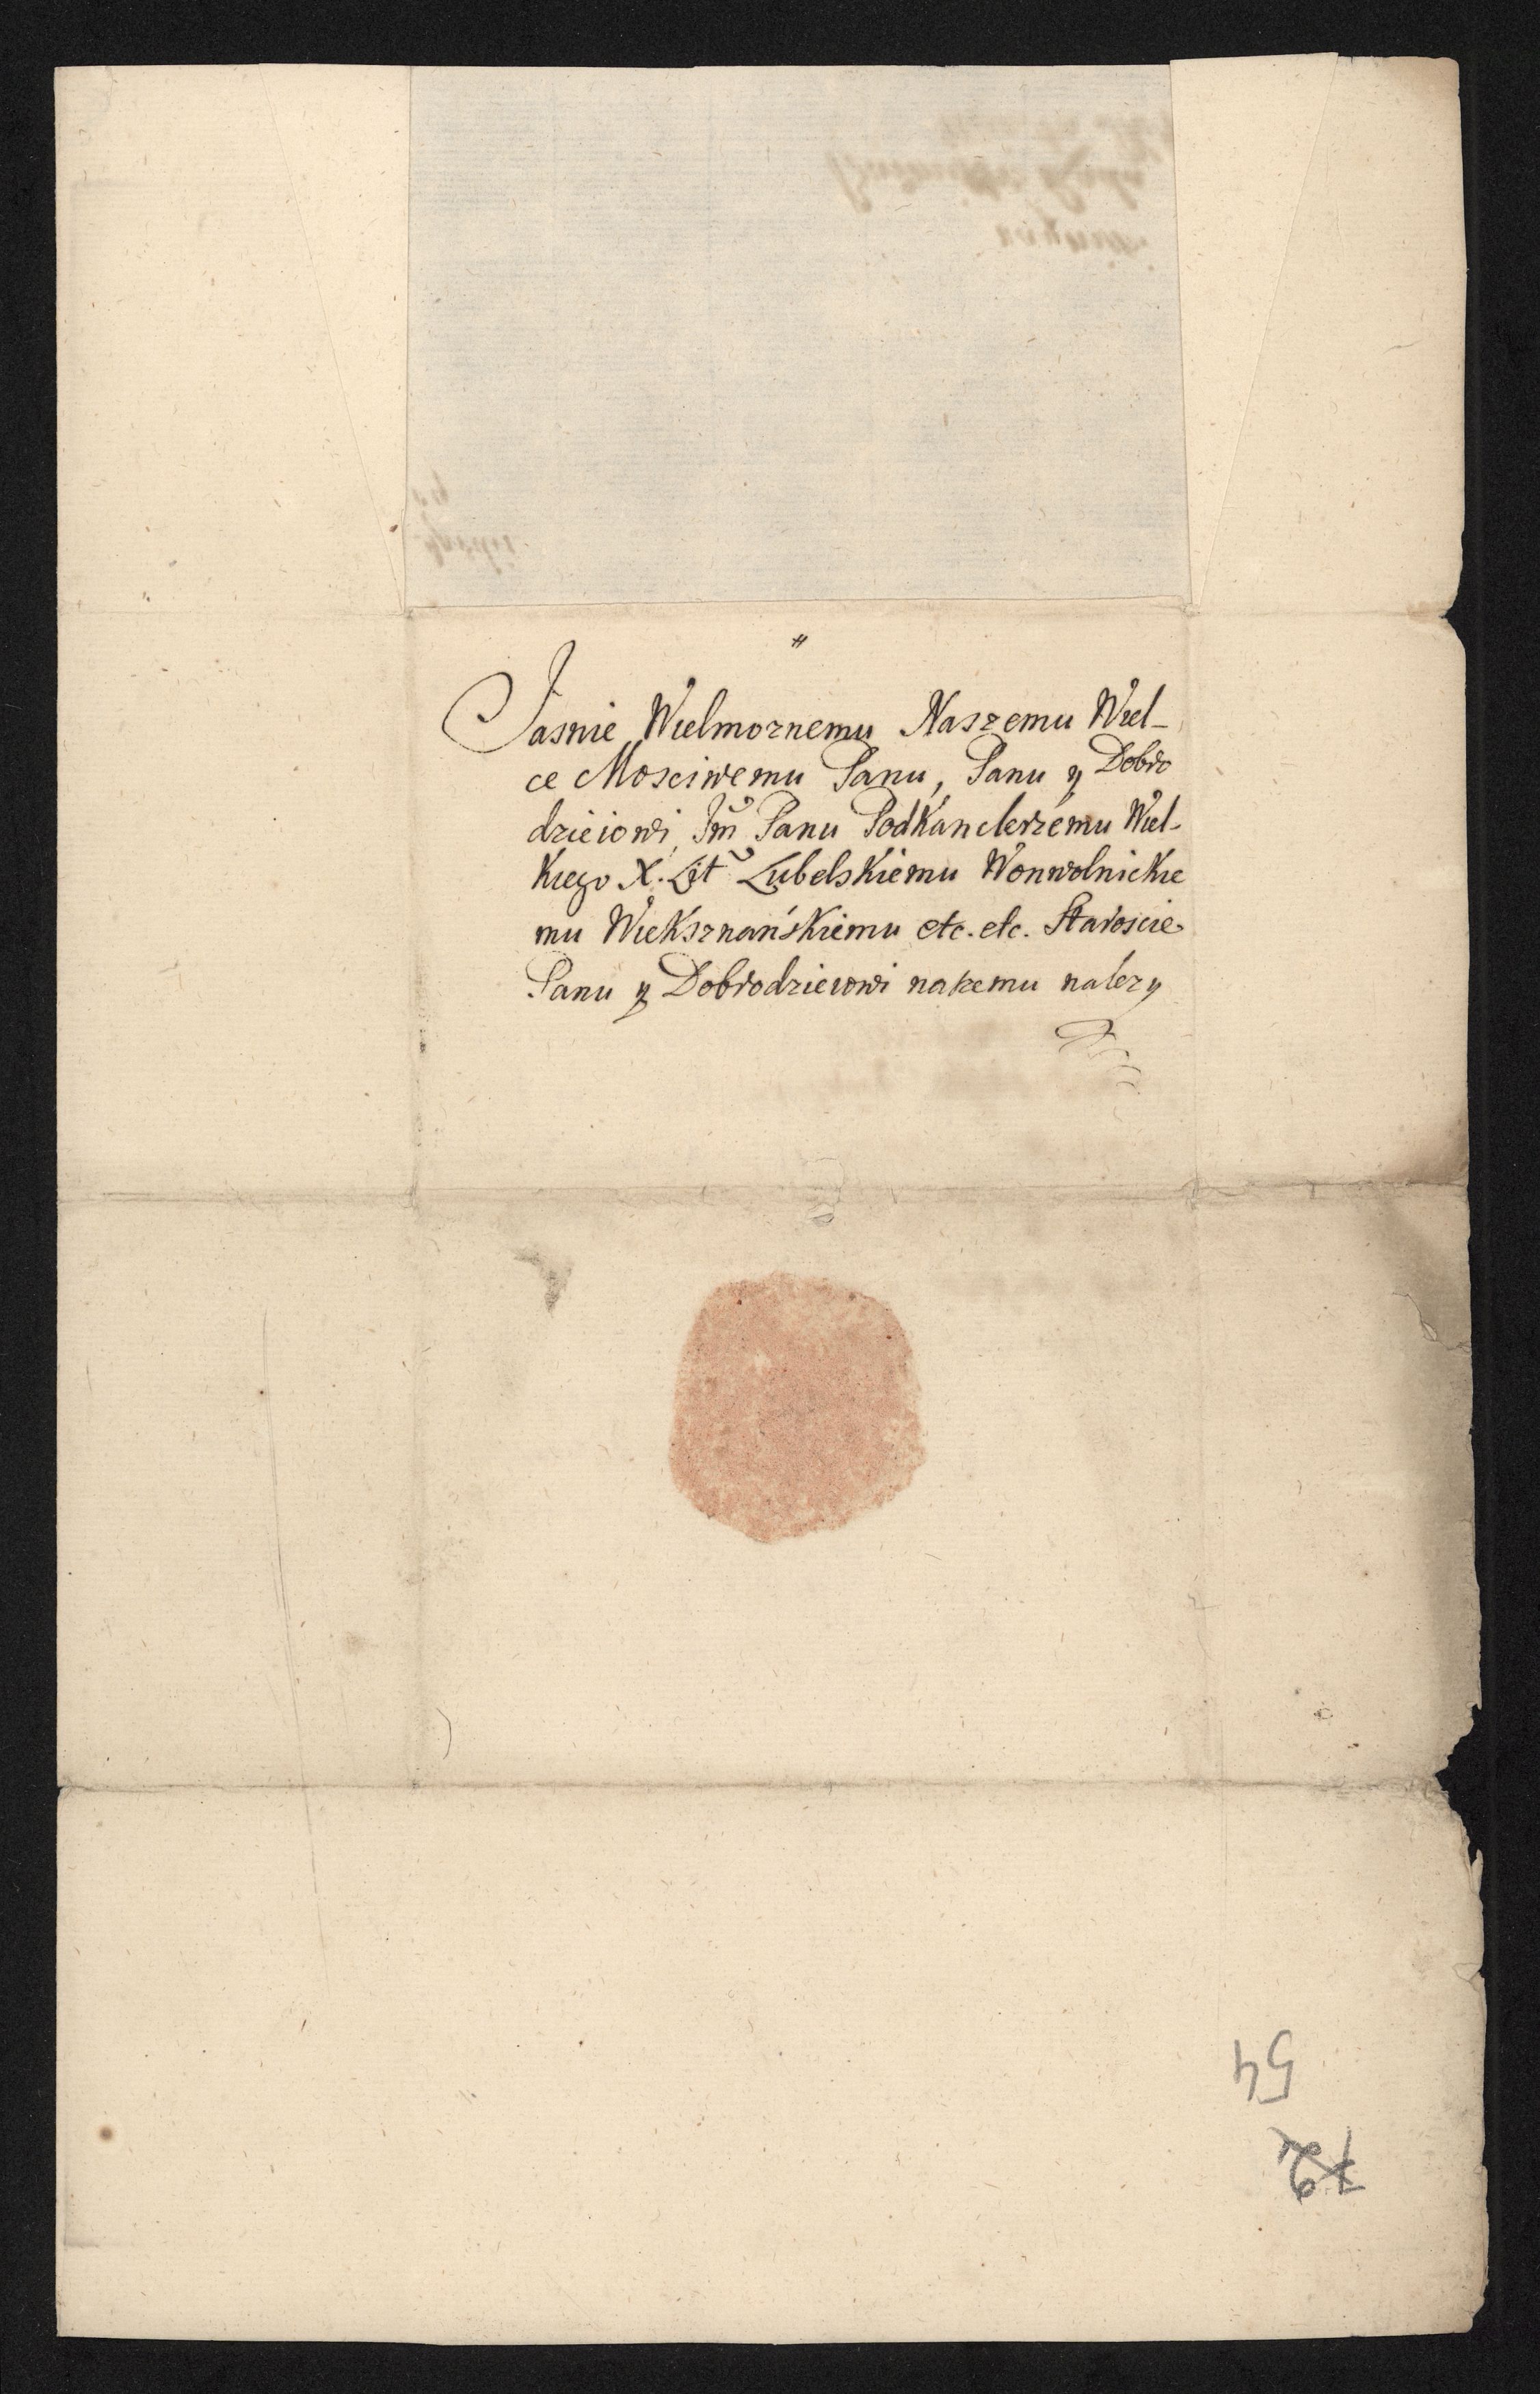 Jasnie Wielmoznemu Naszemu Wiel-
ce Mosciwemu Panu, Panu y Dobro
dzieiowi, Jm Panu Podkanclerzemu Wiel-
kiego X. Lit Lubelskiemu Wonwolnickie
mu Wieksznańskiemu etc. etc. Staroscie
Panu y Dobrodzieiowi naszemu nalezy
54
72